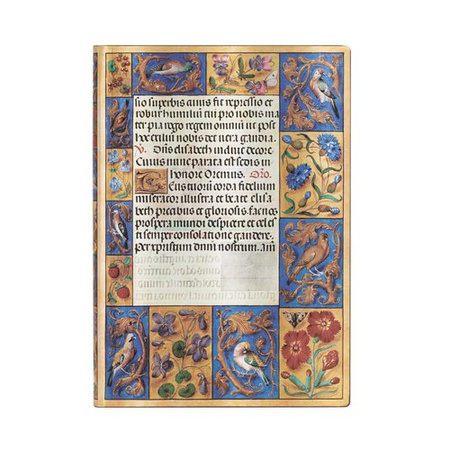 sio superbis amis fit repressio et
robur humili cui pro nobis ma
ter pia rogo regem omniū ut post
hoc exiliū nobis det vera gaudia.
V. Dn̄s elisabeth induit decore
Cuius nunc parata est sedis in
honore Oremus. Oro.
Deus tuorū corda fidelium
miserator illustra et beate elisa
beth precibus et gloriosis fac nos
prospera mundi despicere et celes
ti semper consolatione gaudere.
per xpristum dnm nostrum. am̄